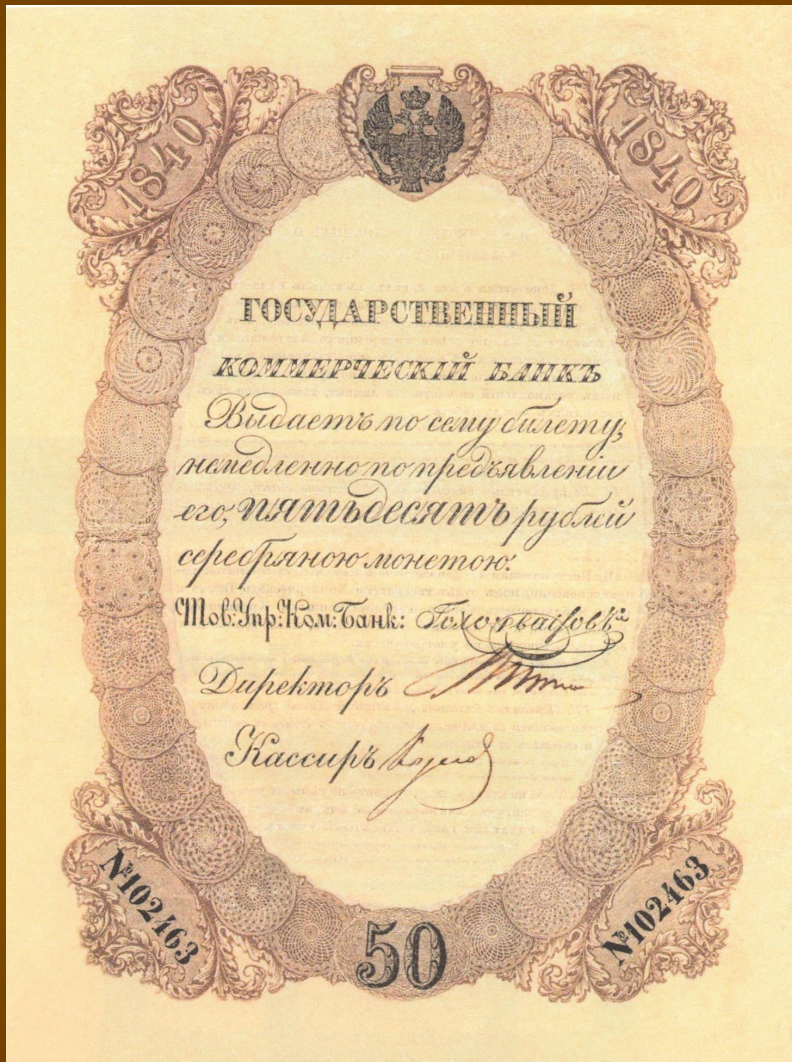 1840 1840
ГОСУДАРСТВЕННЫЙ
КОММЕРЧЕСКІЙ БАНКЪ
Выдаетъ по сему билету,
немедленно по предъявленіи
его, пятьдесятъ рублей
серебряною монетою.
Тов: Упр: Ком: Банк:
Директоръ
Кассиръ
№102463 №102463
50